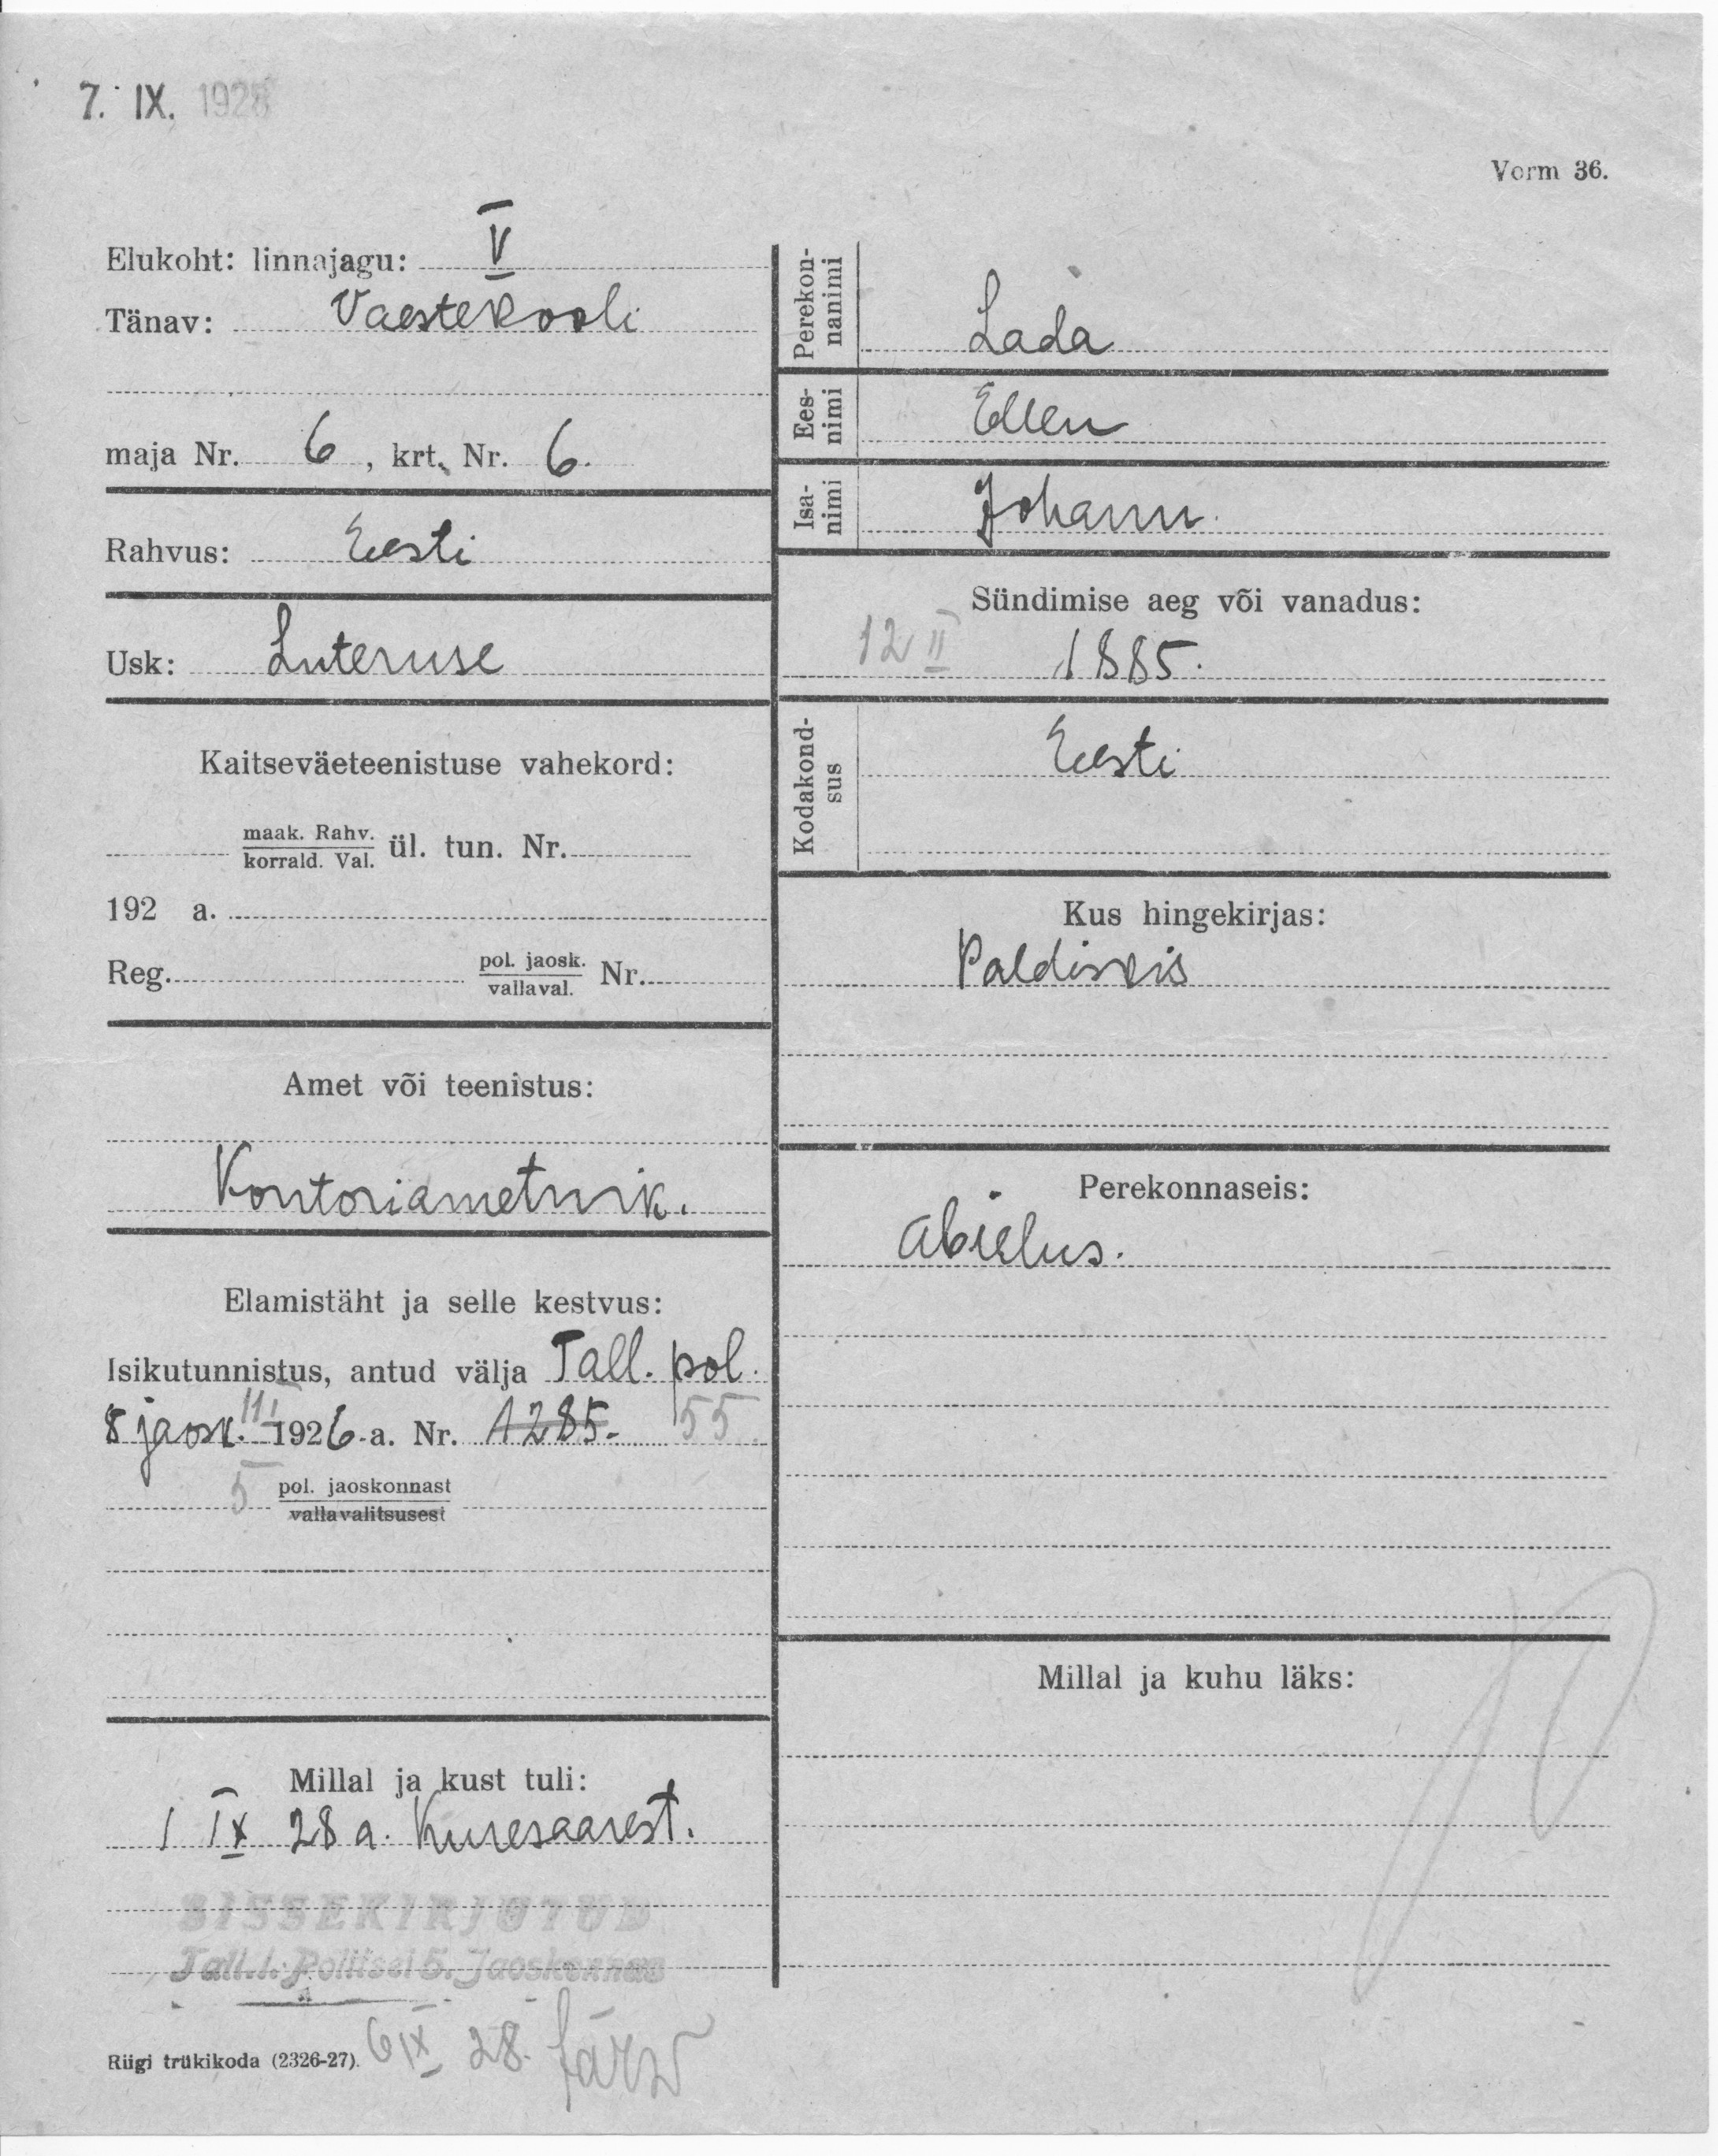 7. IX. 1928
Vorm 36.
Elukoht: linnajagu: V
Tänav: Vaestekooli
maja Nr. 6, krt. Nr. 6.
Rahvus: Eesti
Usk: Luteruse
Kaitseväeteenistuse vahekord:
maak. Rahv.
korrald. Val. ül. tun. Nr.
192 a.
Reg. pol. jaosk.
vallaval. Nr.
Amet või teenistus:
Kontoriametnik.
Elamistäht ja selle kestvus:
Isikutunnistus, antud välja Tall. pol.
8 jaosk. III 1926 a. Nr. 1285. 55
5 pol. jaoskonnast
vallavalitsusest
Millal ja kust tuli:
1 IX 28 a. Kuresaarest.
SISSEKIRJUTUD
Tall. l. Politsei 5. Jaoskonnas
Riigi trükikoda (2326-27). 6 IX 28. Järw
Perekon-
nanimi
Lada
Ees-
nimi
Ellen
Isa-
nimi
Johann.
Sündimise aeg või vanadus:
12 II 1885.
Kodakond-
sus
Eesti
Kus hingekirjas:
Paldiskis
Perekonnaseis:
abielus.
Millal ja kuhu läks: